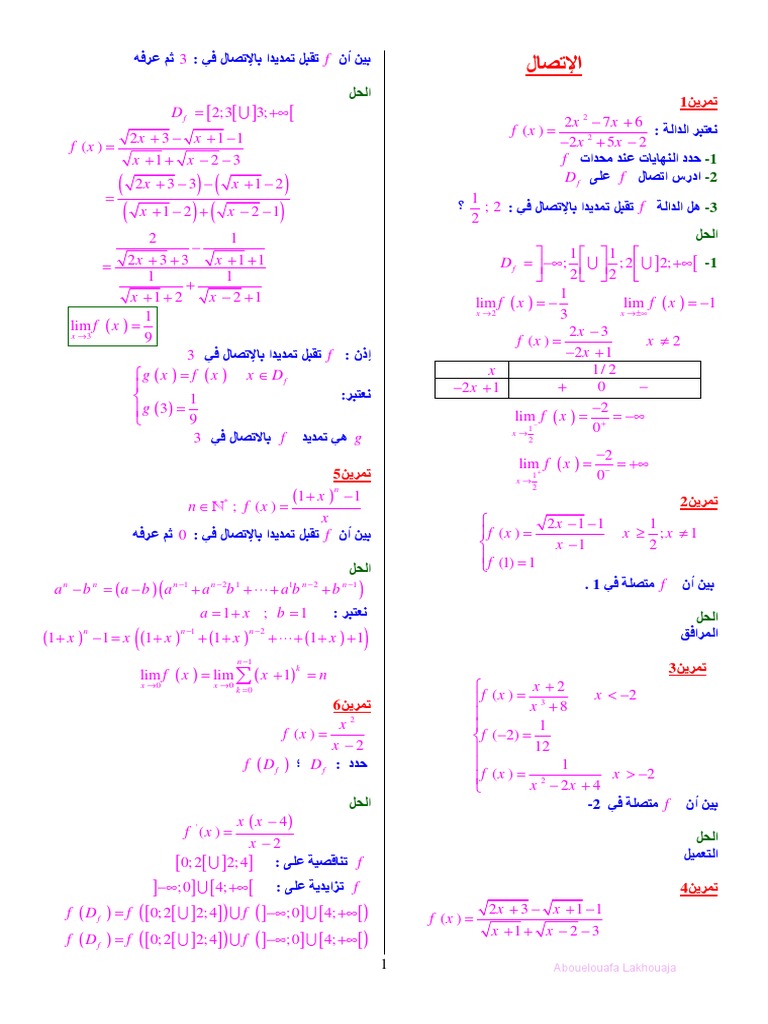 الإتصال
تمرين1
نعتبر الدالة : f(x) = (2x² − 7x + 6) / (−2x² + 5x − 2)
1- حدد النهايات عند محدات f
2- ادرس اتصال f على D_f
3- هل الدالة f تقبل تمديدا بالإتصال في : 2 ; 1/2 ؟
الحل
1- D_f = ]−∞; 1/2[ ∪ ]1/2; 2[ ∪ ]2; +∞[
lim_{x→2} f(x) = −1/3    lim_{x→±∞} f(x) = −1
f(x) = (2x − 3) / (−2x + 1)    x ≠ 2
x    1/2
−2x + 1    +    0    −
lim_{x→1/2⁻} f(x) = −2/0⁺ = −∞
lim_{x→1/2⁺} f(x) = −2/0⁻ = +∞
تمرين2
f(x) = (√(2x − 1) − 1) / (x − 1)    x ≥ 1/2 ; x ≠ 1
f(1) = 1
بين أن f متصلة في 1 .
الحل
المرافق
تمرين3
f(x) = (x + 2) / (x³ + 8)    x < −2
f(−2) = 1/12
f(x) = 1 / (x² − 2x + 4)    x > −2
بين أن f متصلة في 2-
الحل
التعميل
تمرين4
f(x) = (√(2x + 3) − √(x + 1) − 1) / (√(x + 1) + √(x − 2) − 3)
بين أن f تقبل تمديدا بالإتصال في : 3 ثم عرفه
الحل
D_f = [2;3[ ∪ ]3;+∞[
f(x) = (√(2x + 3) − √(x + 1) − 1) / (√(x + 1) + √(x − 2) − 3)
= ((√(2x + 3) − 3) − (√(x + 1) − 2)) / ((√(x + 1) − 2) + (√(x − 2) − 1))
= (2/(√(2x + 3) + 3) − 1/(√(x + 1) + 1)) / (1/(√(x + 1) + 2) + 1/(√(x − 2) + 1))
lim_{x→3} f(x) = 1/9
إذن : f تقبل تمديدا بالإتصال في 3
نعتبر: g(x) = f(x)    x ∈ D_f
g(3) = 1/9
g هي تمديد f بالاتصال في 3
تمرين5
n ∈ ℕ* ; f(x) = ((1 + x)ⁿ − 1) / x
بين أن f تقبل تمديدا بالإتصال في : 0 ثم عرفه
الحل
aⁿ − bⁿ = (a − b)(aⁿ⁻¹ + aⁿ⁻²b¹ + ⋯ + a¹bⁿ⁻² + bⁿ⁻¹)
نعتبر : a = 1 + x ; b = 1
(1 + x)ⁿ − 1 = x((1 + x)ⁿ⁻¹ + (1 + x)ⁿ⁻² + ⋯ + (1 + x) + 1)
lim_{x→0} f(x) = lim_{x→0} ∑_{k=0}^{n−1} (x + 1)ᵏ = n
تمرين6
f(x) = x² / (x − 2)
حدد : D_f ؛ f(D_f)
الحل
f'(x) = x(x − 4) / (x − 2)
f تناقصية على : [0;2[ ∪ ]2;4]
f تزايدية على : ]−∞;0] ∪ [4;+∞[
f(D_f) = f([0;2[ ∪ ]2;4]) ∪ f(]−∞;0] ∪ [4;+∞[)
f(D_f) = f([0;2[ ∪ ]2;4]) ∪ f(]−∞;0] ∪ [4;+∞[)
1
Abouelouafa Lakhouaja